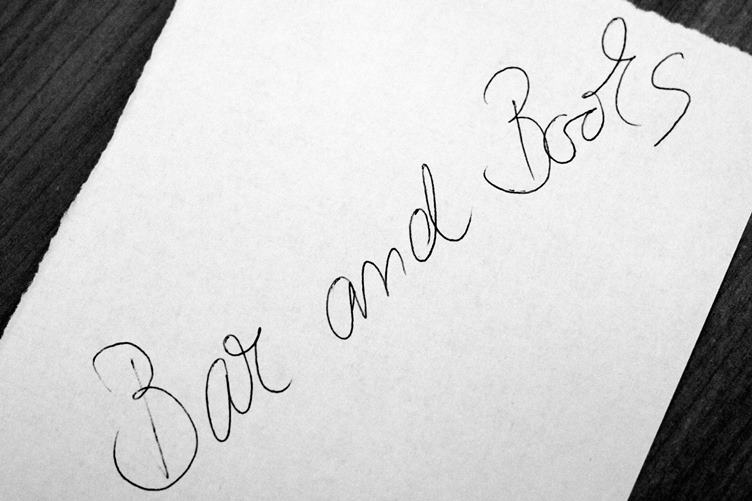 Bar and Books